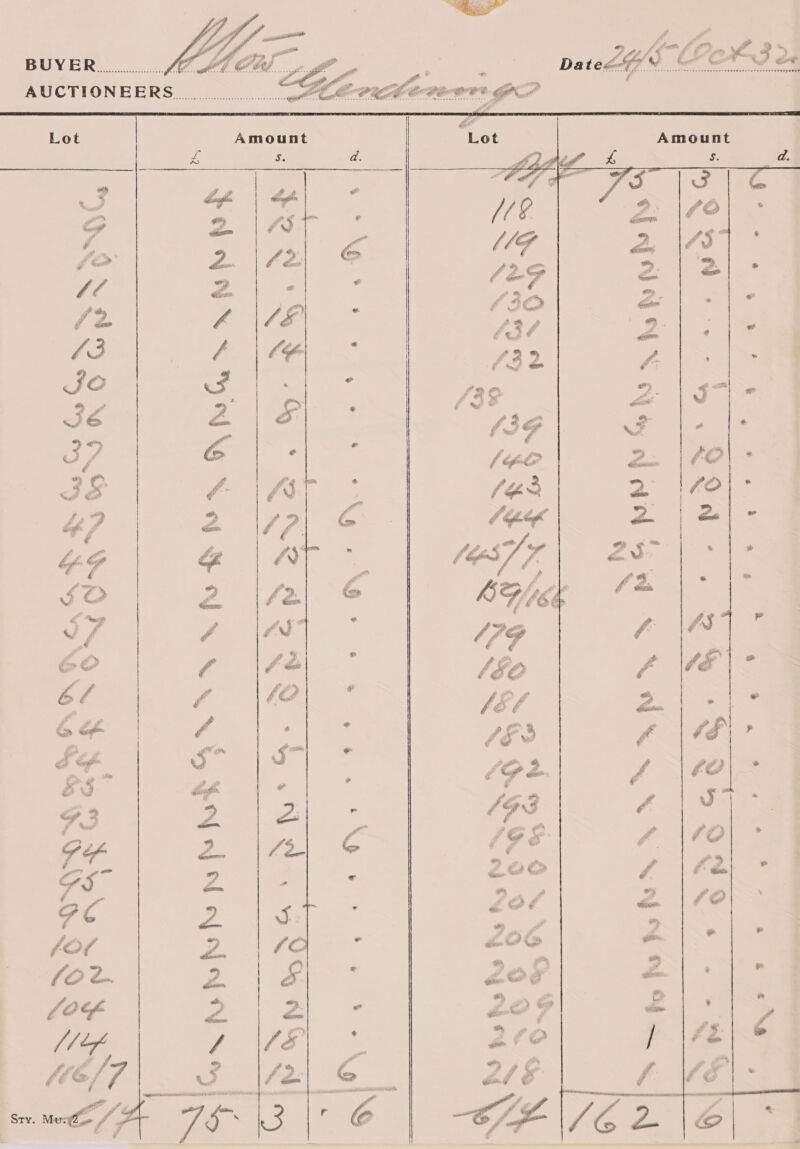 BUYER Mow Date 24/5 Oct 32
AUCTIONEERS Glendinings
Lot Amount Lot Amount
£ s. d. £ s. d.
B/F 75 3 6
3 4 4 - 118 2 10 -
9 2 15 - 119 2 15 -
10 2 12 6 129 2 2 -
11 2 - - 130 2 - -
12 1 18 - 131 2 - -
13 1 14 - 132 1 - -
30 3 - - 138 2 5 -
36 2 8 - 139 3 - -
37 6 - - 140 2 10 -
38 1 15 - 143 2 10 -
47 2 17 6 144 2 2 -
49 4 15 - 145/7 25 - -
50 2 12 6 159/166 12 - -
57 1 15 - 179 1 15 -
60 1 12 - 180 1 18 -
61 1 10 - 181 2 - -
64 1 - - 183 1 18 -
84 5 5 - 192 1 10 -
85 4 - - 193 1 5 -
93 2 2 - 198 1 10 -
94 2 12 6 200 1 12 -
95 2 - - 201 2 10 -
96 2 5 - 206 2 - -
101 2 10 - 208 2 - -
102 2 8 - 209 2 - -
104 2 2 - 210 1 12 6
114 1 18 - 218 1 18 -
116/7 3 12 6
Sty. Mu. 2 C/F 75 3 6 C/F 162 6 -